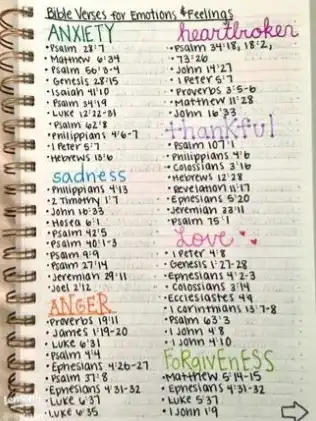 Bible Verses for Emotions & Feelings
ANXIETY
• Psalm 28:7
• Matthew 6:34
• Psalm 56:3-4
• Genesis 28:15
• Isaiah 41:10
• Psalm 34:19
• Luke 12:22-31
• Psalm 62:8
• Philippians 4:6-7
• 1 Peter 5:7
• Hebrews 13:6
sadness
• Philippians 4:13
• 2 Timothy 1:7
• John 16:33
• Hosea 6:1
• Psalm 42:5
• Psalm 40:1-3
• Psalm 9:9
• Psalm 27:14
• Jeremiah 29:11
• Joel 2:12
ANGER
• Proverbs 19:11
• James 1:19-20
• Luke 6:31
• Psalm 4:4
• Ephesians 4:26-27
• Psalm 37:8
• Ephesians 4:31-32
• Luke 6:37
• Luke 6:35
heartbroken
• Psalm 34:18, 18:2,
73:26
• John 14:27
• 1 Peter 5:7
• Proverbs 3:5-6
• Matthew 11:28
• John 16:33
thankful
• Psalm 107:1
• Philippians 4:6
• Colossians 3:16
• Hebrews 12:28
• Revelation 11:17
• Ephesians 5:20
• Jeremiah 33:11
• Psalm 75:1
Love
• 1 Peter 4:8
• Genesis 1:27-28
• Ephesians 4:2-3
• Colossians 3:14
• Ecclesiastes 4:9
• 1 Corinthians 13:7-8
• Psalm 63:3
• 1 John 4:8
• John 4:10
FORGIVENESS
• Matthew 5:14-15
• Ephesians 4:31-32
• Luke 6:37
• 1 John 1:9